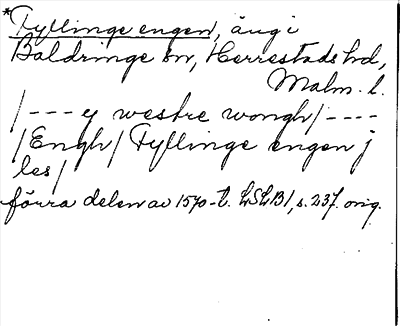 *Fyllinge engen, äng i
Baldringe sn, Herrestads hd,
Malm. l.
/--- y westre wongh/----
/Engh/ Fyllinge engen j
les/
förra delen av 1570-t. LSLB1, s. 237. orig.